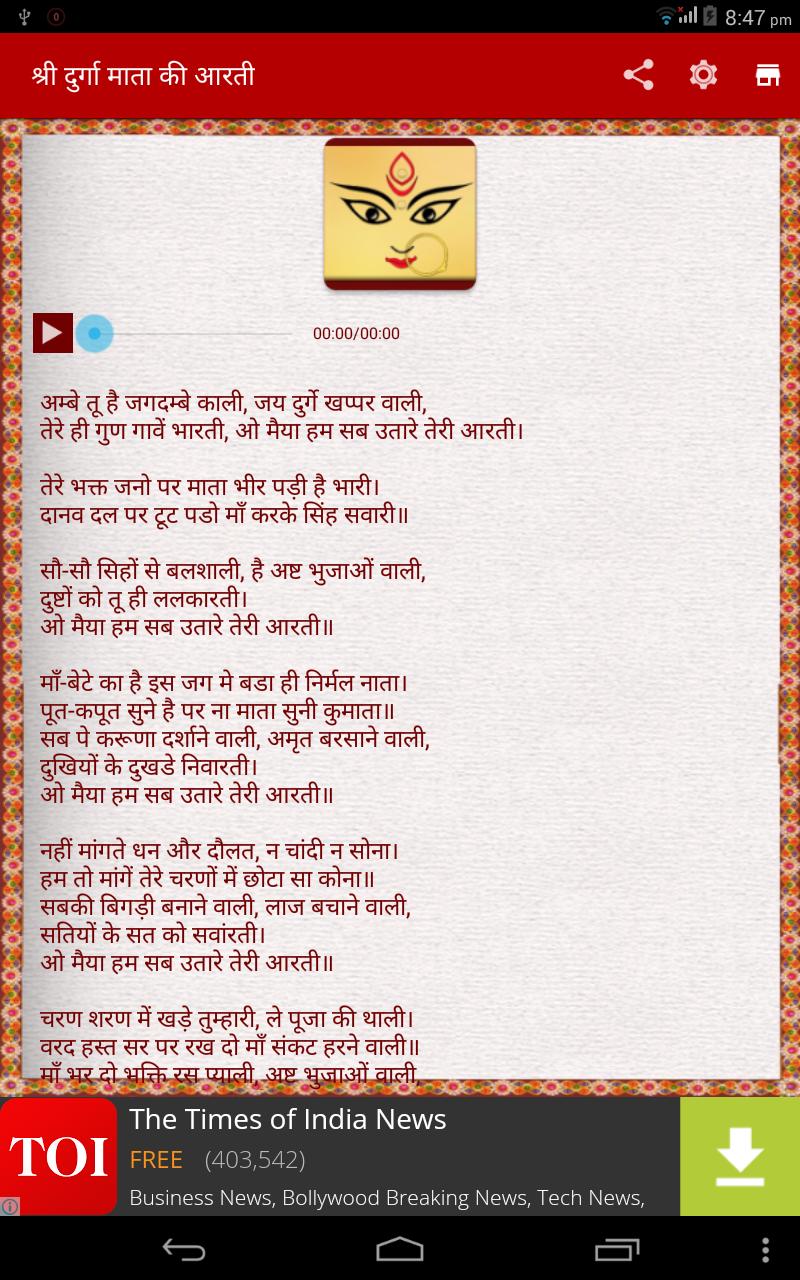 0
8:47 pm
श्री दुर्गा माता की आरती
00:00/00:00
अम्बे तू है जगदम्बे काली, जय दुर्गे खप्पर वाली,
तेरे ही गुण गावें भारती, ओ मैया हम सब उतारे तेरी आरती।
तेरे भक्त जनो पर माता भीर पड़ी है भारी।
दानव दल पर टूट पडो माँ करके सिंह सवारी॥
सौ-सौ सिहों से बलशाली, है अष्ट भुजाओं वाली,
दुष्टों को तू ही ललकारती।
ओ मैया हम सब उतारे तेरी आरती॥
माँ-बेटे का है इस जग मे बडा ही निर्मल नाता।
पूत-कपूत सुने है पर ना माता सुनी कुमाता॥
सब पे करूणा दर्शाने वाली, अमृत बरसाने वाली,
दुखियों के दुखडे निवारती।
ओ मैया हम सब उतारे तेरी आरती॥
नहीं मांगते धन और दौलत, न चांदी न सोना।
हम तो मांगें तेरे चरणों में छोटा सा कोना॥
सबकी बिगड़ी बनाने वाली, लाज बचाने वाली,
सतियों के सत को सवांरती।
ओ मैया हम सब उतारे तेरी आरती॥
चरण शरण में खड़े तुम्हारी, ले पूजा की थाली।
वरद हस्त सर पर रख दो माँ संकट हरने वाली॥
माँ भर दो भक्ति रस प्याली, अष्ट भुजाओं वाली,
TOI
The Times of India News
FREE (403,542)
Business News, Bollywood Breaking News, Tech News,